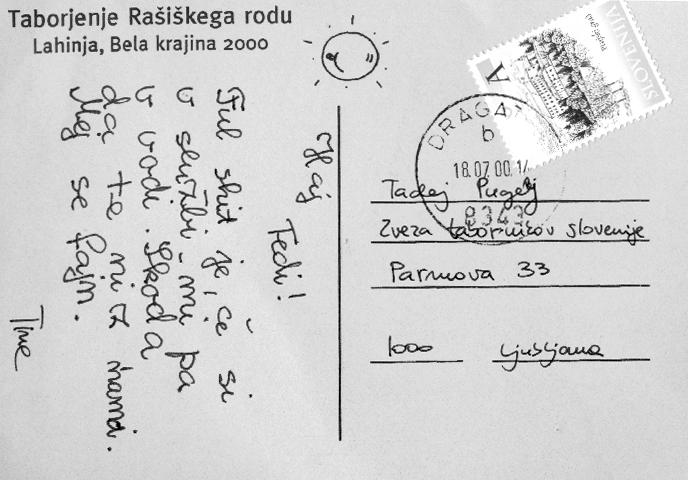 Taborjenje Rašiškega rodu
Lahinja, Bela krajina 2000
Haj
Tedi!
Ful shit je, če si
v službi - mi pa
v vodi. Škoda
da te ni z nami.
Mej se fajn.
Tine
SLOVENIJA
A
DRAGA
b
18.07.00.
8343
Tadej Pugelj
Zveza tabornikov slovenije
Parmova 33
1000 Ljubljana